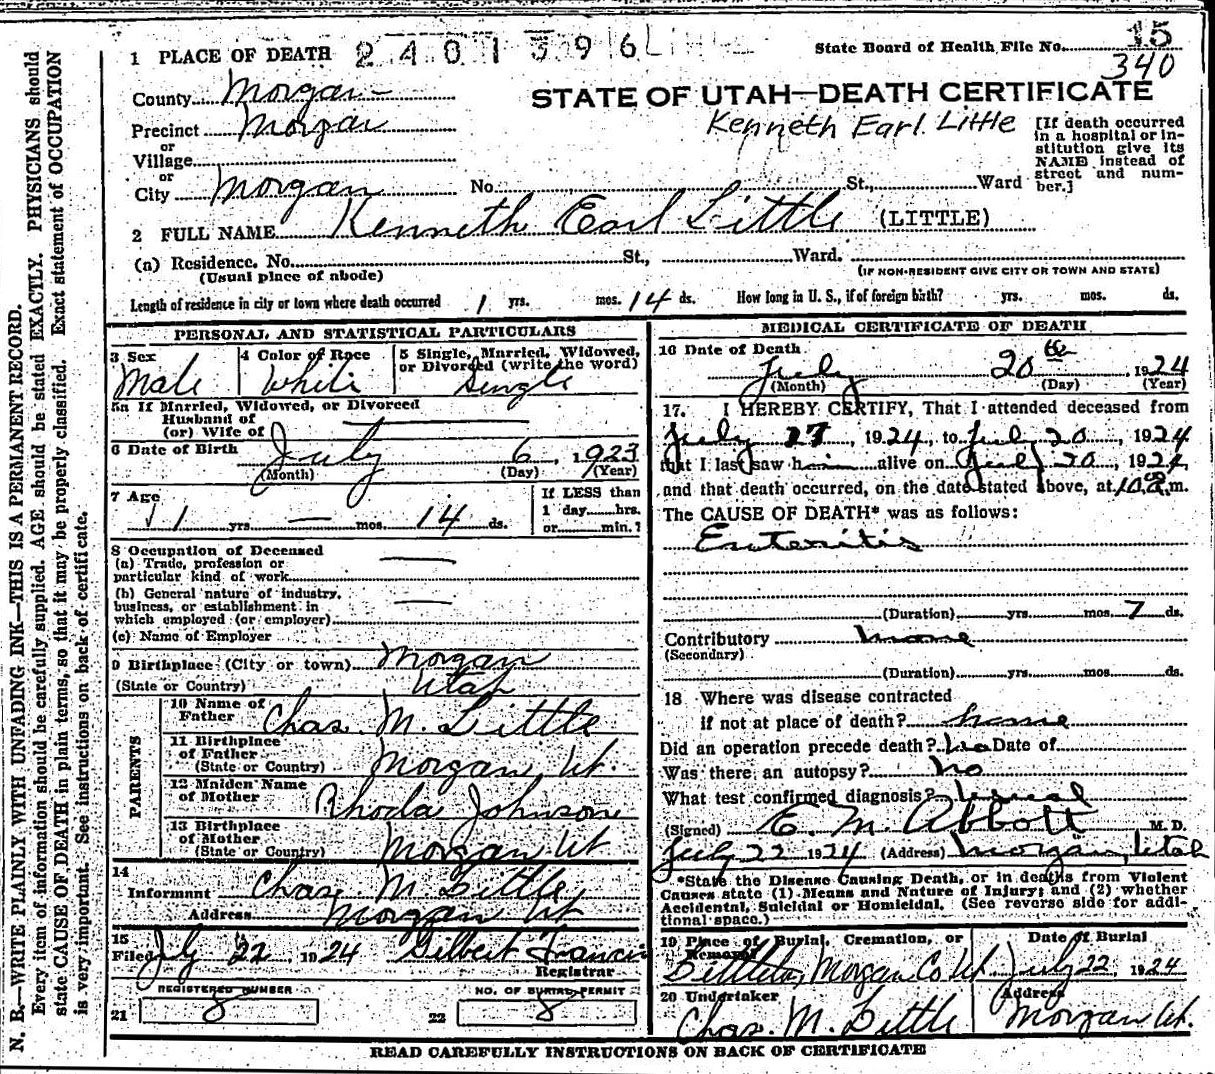 N. B.—WRITE PLAINLY WITH UNFADING INK—THIS IS A PERMANENT RECORD.
Every item of information should be carefully supplied. AGE should be stated EXACTLY. PHYSICIANS should
state CAUSE OF DEATH in plain terms, so that it may be properly classified. Exact statement of OCCUPATION
is very important. See instructions on back of certificate.
1 PLACE OF DEATH 2401396 Little
State Board of Health File No. 15
340
County Morgan
STATE OF UTAH—DEATH CERTIFICATE
Kenneth Earl Little
Precinct Morgan
or
Village
or
City Morgan No. St., Ward
[If death occurred
in a hospital or in-
stitution give its
NAME instead of
street and num-
ber.]
2 FULL NAME Kenneth Earl Little (LITTLE)
(a) Residence. No. St., Ward.
(Usual place of abode) (IF NON-RESIDENT GIVE CITY OR TOWN AND STATE)
Length of residence in city or town where death occurred 1 yrs. mos. 14 ds. How long in U. S., if of foreign birth? yrs. mos. ds.
PERSONAL AND STATISTICAL PARTICULARS
3 Sex 4 Color of Race 5 Single, Married, Widowed,
or Divorced (write the word)
Male White Single
5a If Married, Widowed, or Divorced
Husband of
(or) Wife of
6 Date of Birth July 6, 1923
(Month) (Day) (Year)
7 Age If LESS than
1 day hrs.
1 yrs. — mos. 14 ds. or min.?
8 Occupation of Deceased
(a) Trade, profession or
particular kind of work —
(b) General nature of industry,
business, or establishment in
which employed (or employer) —
(c) Name of Employer
9 Birthplace (City or town) Morgan
(State or Country) Utah
PARENTS
10 Name of
Father Chas. M. Little
11 Birthplace
of Father
(State or Country) Morgan Ut.
12 Maiden Name
of Mother Rhoda Johnson
13 Birthplace
of Mother
(State or Country) Morgan Ut
14
Informant Chas. M. Little
Address Morgan Ut
15
Filed July 22 1924 Gilbert Francis
Registrar
REGISTERED NUMBER NO. OF BURIAL PERMIT
21 8 22 8
MEDICAL CERTIFICATE OF DEATH
16 Date of Death
July 20th 1924
(Month) (Day) (Year)
17. I HEREBY CERTIFY, That I attended deceased from
July 17, 1924, to July 20, 1924
that I last saw him alive on July 20, 1924,
and that death occurred, on the date stated above, at 10 m.
The CAUSE OF DEATH* was as follows:
Enteritis
(Duration) yrs. mos. 7 ds.
Contributory none
(Secondary)
(Duration) yrs. mos. ds.
18 Where was disease contracted
if not at place of death? home
Did an operation precede death? no Date of
Was there an autopsy? no
What test confirmed diagnosis? Usual
(Signed) E. M. Abbott M. D.
July 22 1924 (Address) Morgan, Utah
*State the Disease Causing Death, or in deaths from Violent
Causes state (1) Means and Nature of Injury; and (2) whether
Accidental, Suicidal or Homicidal. (See reverse side for addi-
tional space.)
19 Place of Burial, Cremation, or Date of Burial
Removal
Littleton, Morgan Co Ut July 22 1924
20 Undertaker Address
Chas. M. Little Morgan Ut.
READ CAREFULLY INSTRUCTIONS ON BACK OF CERTIFICATE